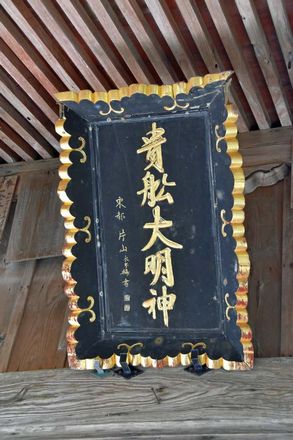 貴舩大明神
東都 片山
書